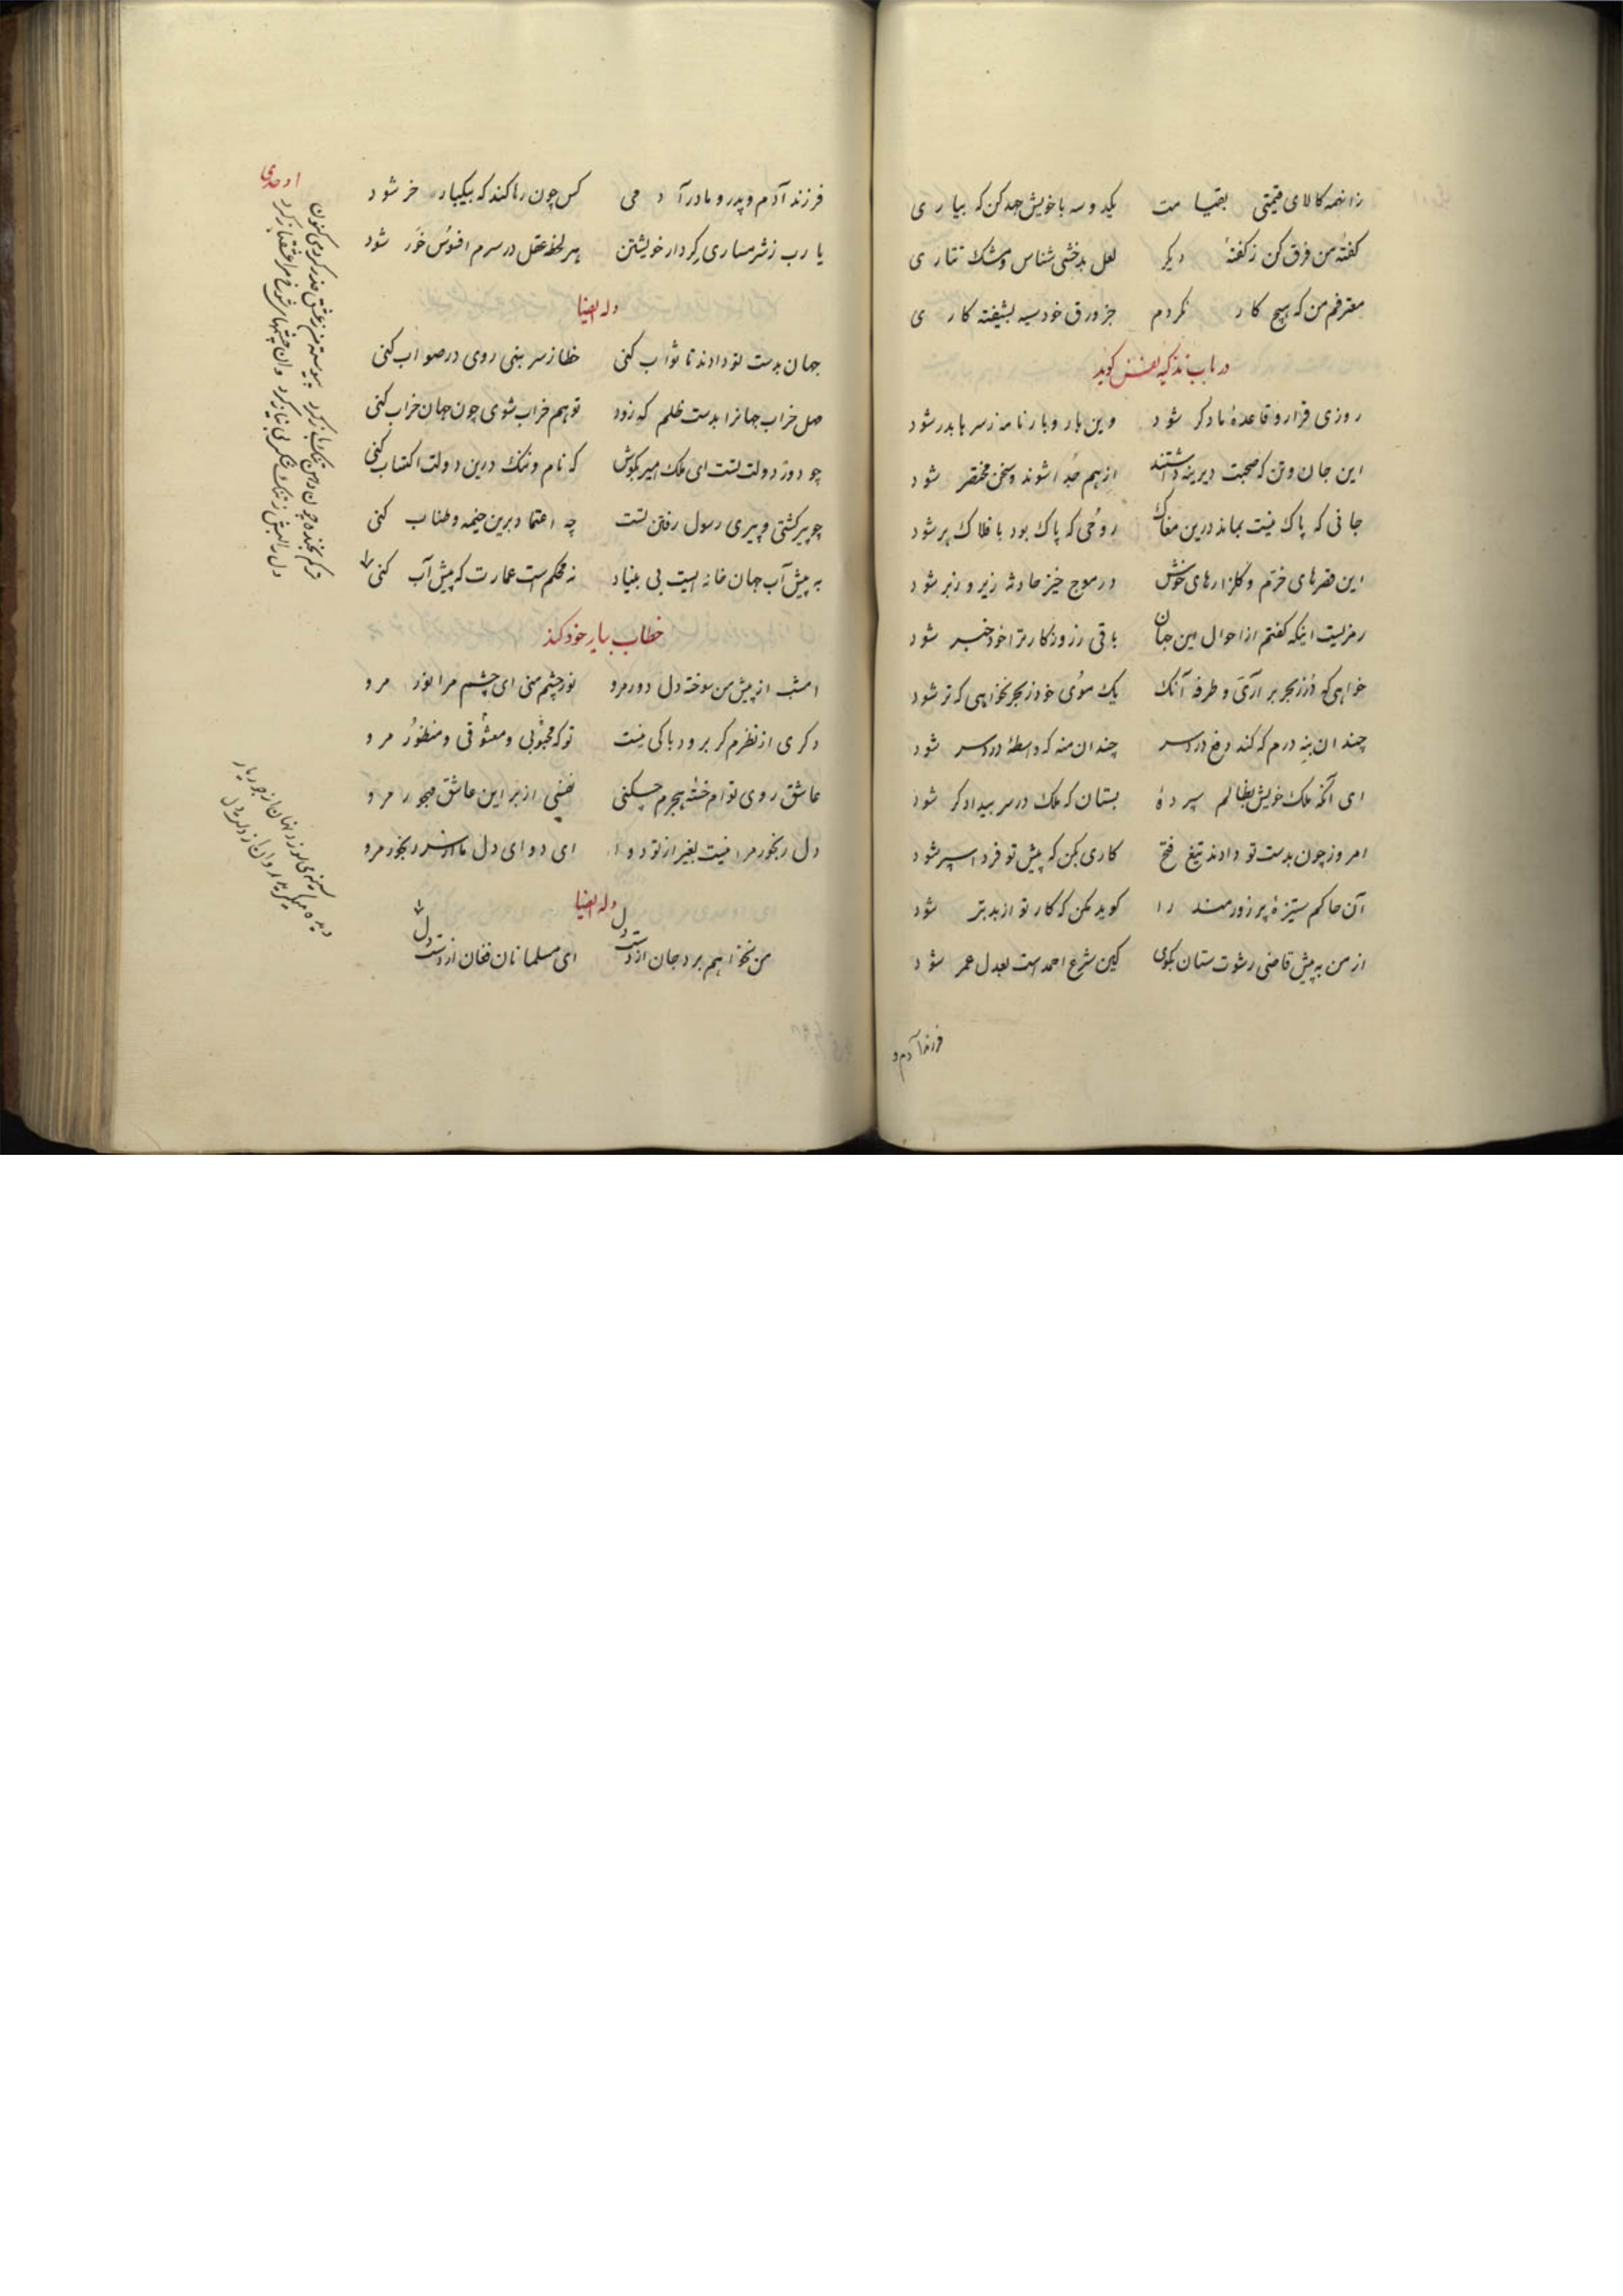 زانهمه کالای قیمتی بقیامت یکدوسه با خویش جهد کن که بیاری
کفتهٔ من فرق کن ز کفتهٔ دیکر لعل بدخشی شناس و مشک تتاری
معترفم من که هیچ کار نکردم جز ورق خود سیه بشیفته کاری
در باب تزکیه نفس کوید
روزی قرار و قاعدهٔ ما دکر شود وین بار و بارنامه ز سر با بدر شود
این جان و تن که صحبت دیرینه داشتند از هم جدا شوند و سخن مختصر شود
جانی که پاک نیست بماند درین مغاک روحی که پاک بود بافلاک بر شود
این قصرهای خرم و کلزارهای خوش در موج خیز حادثه زیر و زبر شود
رمزیست اینکه کفتم از احوال این جهان باقی ز روزکار ترا خود خبر شود
خواهی که دُر ز بحر برآری و طرفه آنک یک موی خود ز بحر نخواهی که تر شود
چندان بنه درم که کند دفع درد سر چندان منه که واسطهٔ درد سر شود
ای آنکه ملک خویش بظالم سپردهٔ بستان که ملک در سر بیدادکر شود
امروز چون بدست تو دادند تیغ فتح کاری بکن که پیش تو فردا سپر شود
آن حاکم ستیزهٔ پر زورمند را کوید مکن که کار تو از بد بتر شود
از من به پیش قاضی رشوت ستان بکوی کین شرع احمدست بعدل عمر شود
فرزند آدم و
فرزند آدم و پدر و مادر آدمی کس چون رها کند که بیکباره خر شود
یا رب ز شرمساری کردار خویشتن هر لحظه عقل در سرم افسوس خور شود
وله ایضا
جهان بدست تو دادند تا ثواب کنی خطا ز سر بنهی روی در صواب کنی
مهل خراب جهانرا بدست ظلم که زود تو هم خراب شوی چون جهان خراب کنی
چو دور دولت تست ای ملک امیر بکوش که نام و ننک درین دولت اکتساب کنی
چو پیر کشتی و پیری رسول رفتن تست چه اعتماد برین خیمه و طناب کنی
به پیش آب جهان خانه ایست بی بنیاد نه محکم است عمارت که پیش آب کنی
خطاب بیار خود کند
امشب از پیش من سوخته دل دور مرو نور چشم منی ای چشم مرا نور مرو
دکری از نظرم کر برود باکی نیست تو که محبوبی و معشوقی و منظور مرو
عاشق روی توام خسته هجرم چکنی نفسی از بر این عاشق مهجور مرو
دل رنجور مرا نیست بغیر از تو دوا ای دوای دل ما از سر رنجور مرو
وله ایضا
من نخواهم برد جان از دست دل ای مسلمانان فغان از دست دل
اوحدی
سینه می سوزد نهان از جور یار